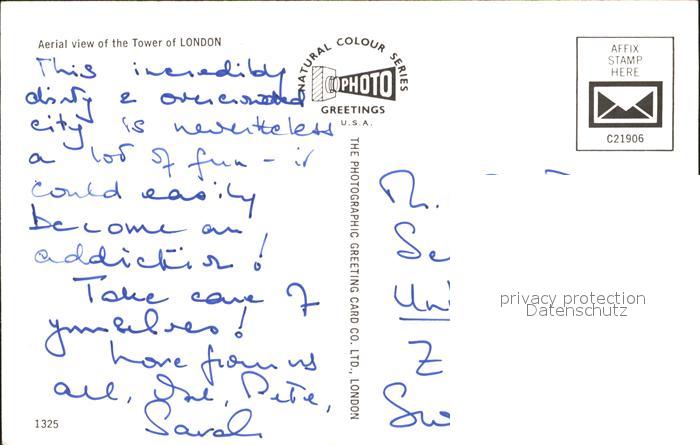 Aerial view of the Tower of LONDON
This incredibly
dirty & overcrowded
city is nevertheless
a lot of fun - it
could easily
become an
addiction!
Take care of
yourselves!
Love from us
all, Pete,
Sarah
1325
NATURAL COLOUR SERIES
PHOTO
GREETINGS
U.S.A.
THE PHOTOGRAPHIC GREETING CARD CO. LTD., LONDON
AFFIX
STAMP
HERE
C21906
Se
Uni
Z
privacy protection
Datenschutz